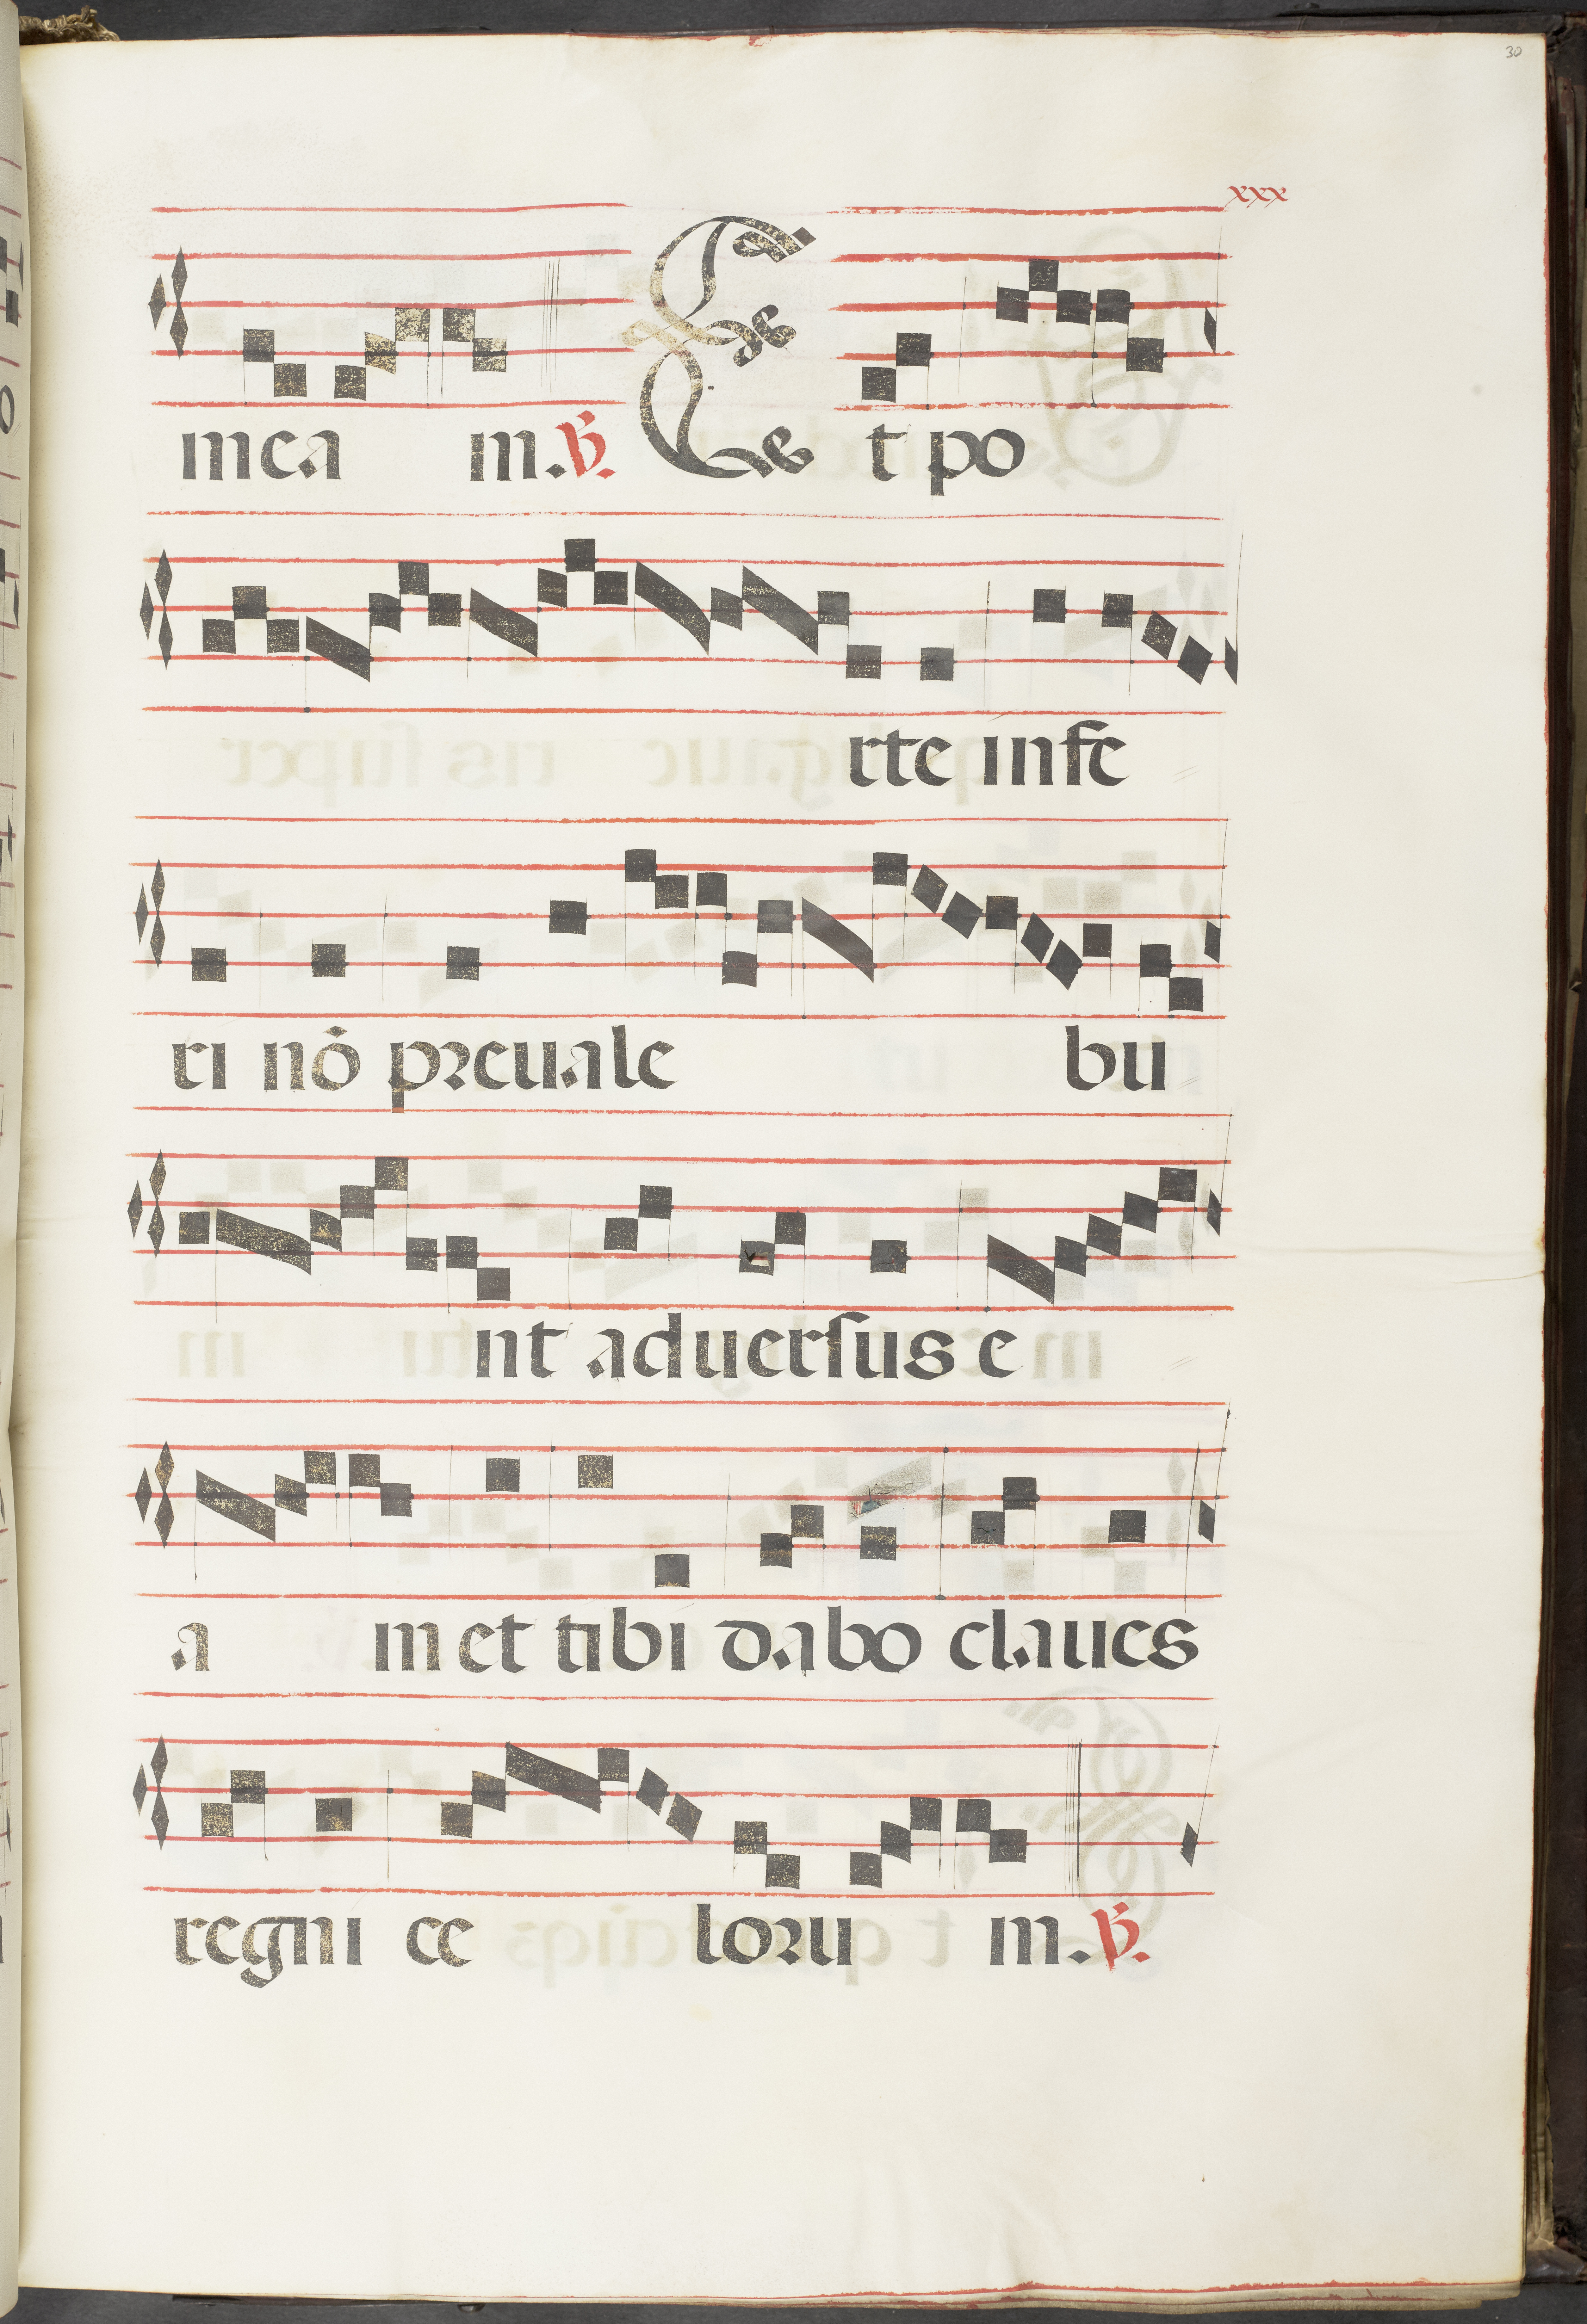 30
xxx
mea m. ℣. Et po
rte infe
ri nō preuale bu
nt aduersus e
a m et tibi dabo claues
regni ce loru m. ℣.